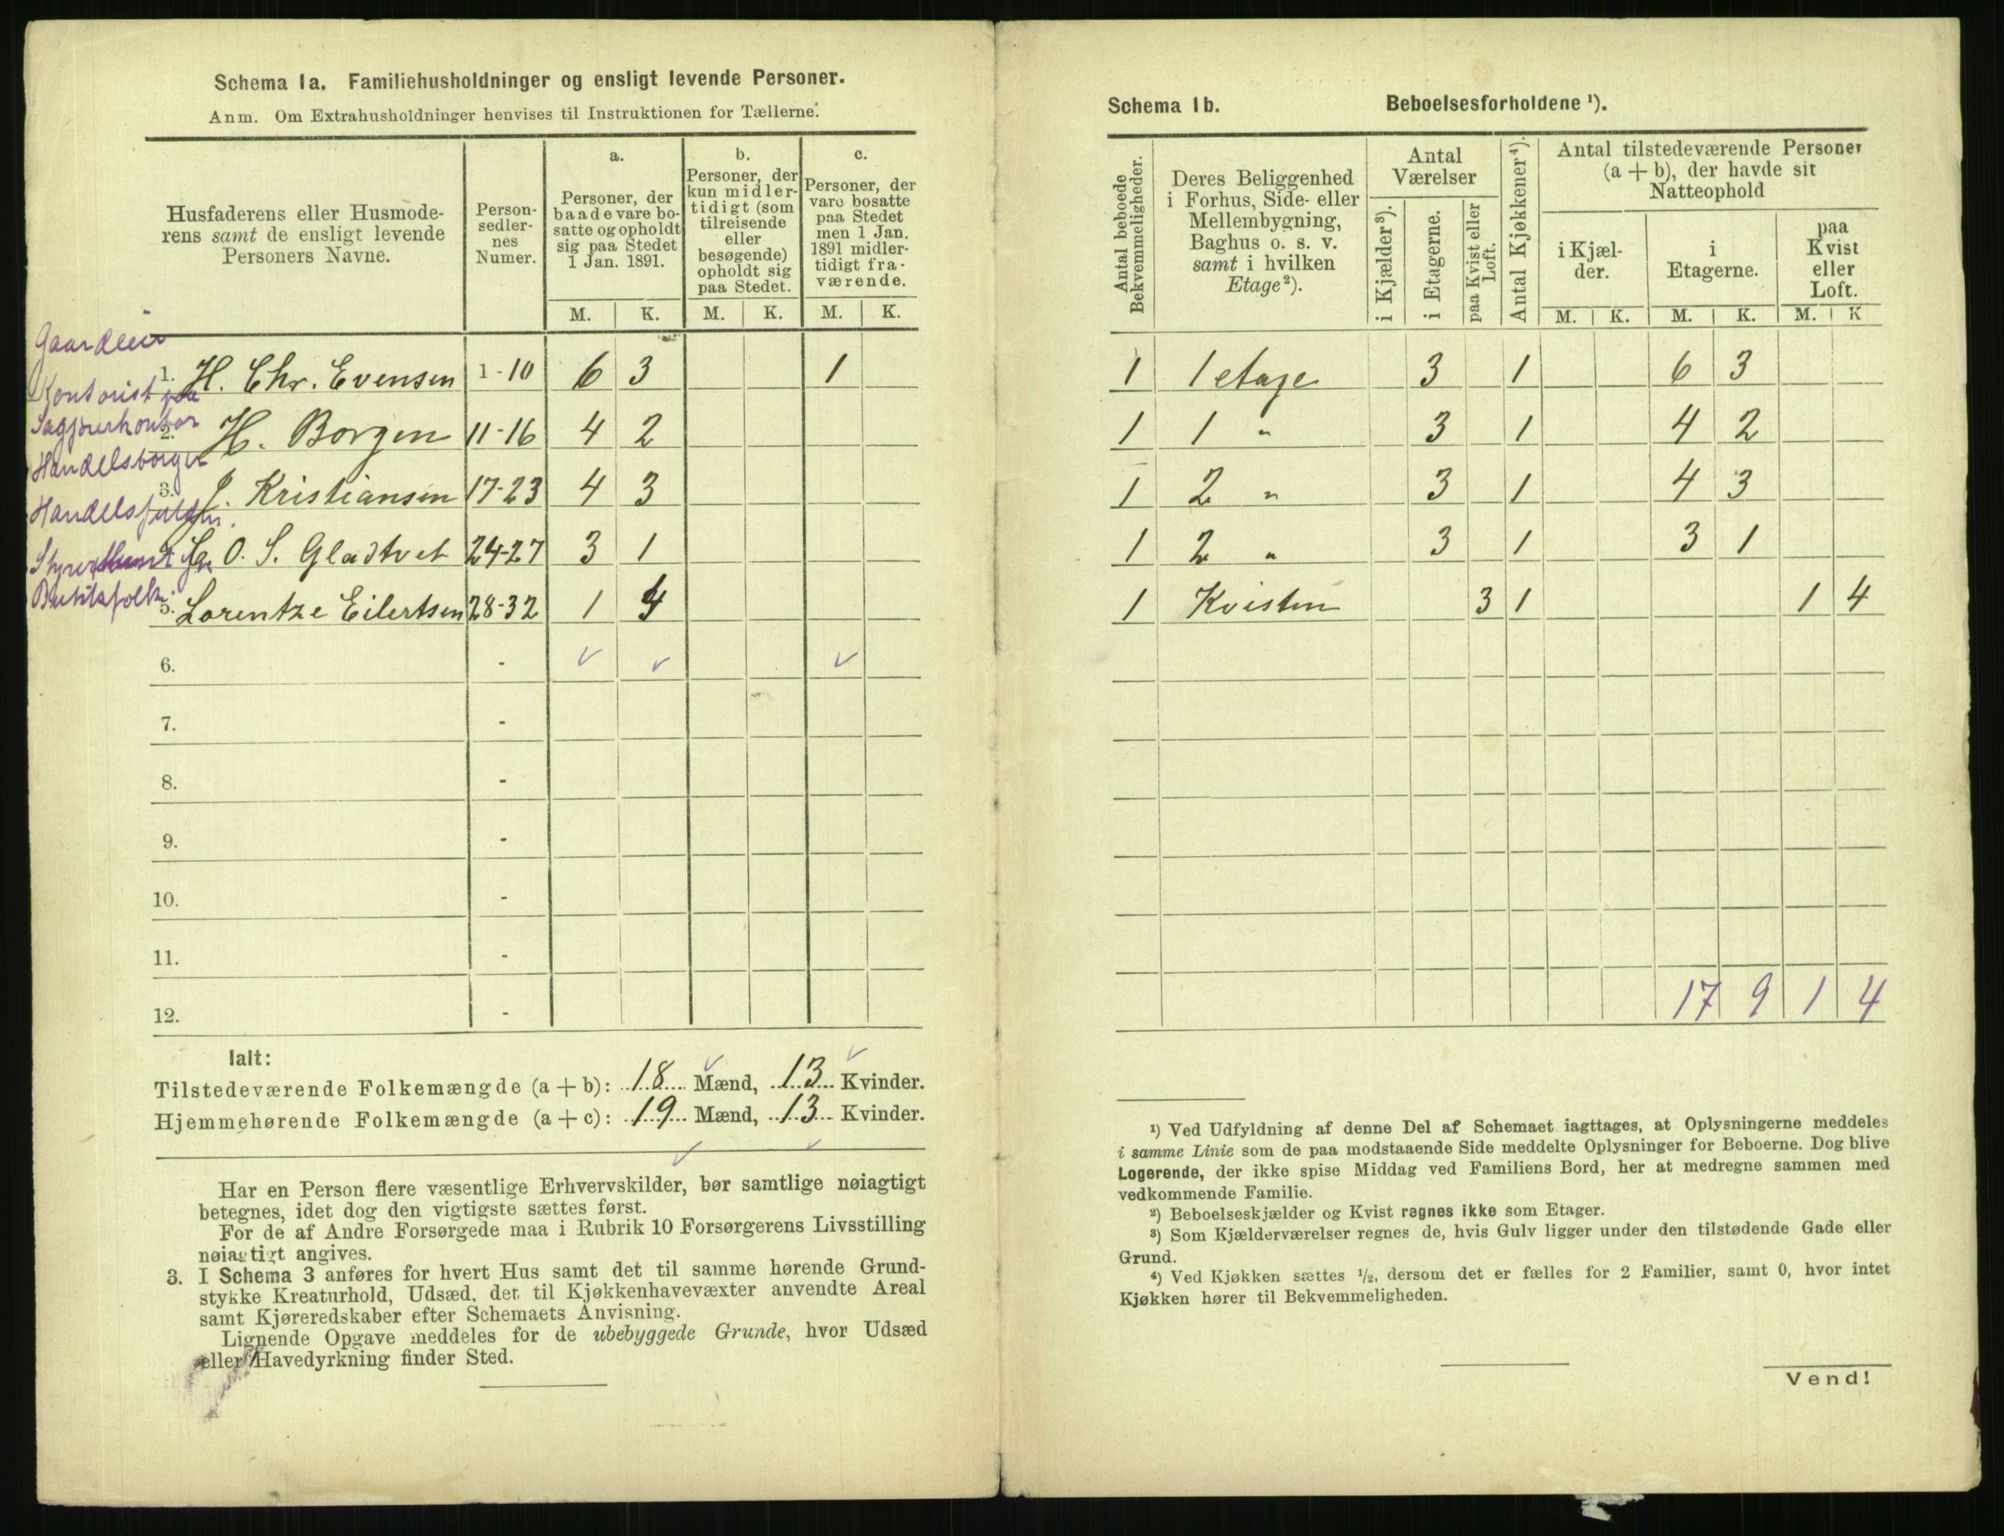 Schema 1a. Familiehusholdninger og ensligt levende Personer.
Anm. Om Extrahusholdninger henvises til Instruktionen for Tællerne.
Husfaderens eller Husmode-
rens samt de ensligt levende
Personers Navne.
Person-
sedler-
nes
Numer.
a.
Personer, der
baade vare bo-
satte og opholdt
sig paa Stedet
1 Jan. 1891.
b.
Personer, der
kun midler-
tidigt (som
tilreisende
eller
besøgende)
opholdt sig
paa Stedet.
c.
Personer, der
vare bosatte
paa Stedet
men 1 Jan.
1891 midler-
tidigt fra-
værende.
M. K. M. K. M. K.
Gaardeier
1. H. Chr. Evensen 1-10 6 3 1
Kontorist paa
Sagførerkontor
2. H. Borgen 11-16 4 2
Handelsborger
3. J. Kristiansen 17-23 4 3
O. S. Gladtvet 24-27 3 1
5. Lorentze Eilertsen 28-32 1 4
6. -
7. -
8. -
9. -
10. -
11. -
12. -
Ialt:
Tilstedeværende Folkemængde (a + b): 18 Mænd, 13 Kvinder.
Hjemmehørende Folkemængde (a + c): 19 Mænd, 13 Kvinder.
Har en Person flere væsentlige Erhvervskilder, bør samtlige nøiagtigt
betegnes, idet dog den vigtigste sættes først.
For de af Andre Forsørgede maa i Rubrik 10 Forsørgerens Livsstilling
nøiagtigt angives.
3. I Schema 3 anføres for hvert Hus samt det til samme hørende Grund-
stykke Kreaturhold, Udsæd, det til Kjøkkenhavevæxter anvendte Areal
samt Kjøreredskaber efter Schemaets Anvisning.
Lignende Opgave meddeles for de ubebyggede Grunde, hvor Udsæd
eller Havedyrkning finder Sted.
Schema 1b. Beboelsesforholdene ¹).
Antal beboede
Bekvemmeligheder.
Deres Beliggenhed
i Forhus, Side- eller
Mellembygning,
Baghus o. s. v.
samt i hvilken
Etage²).
Antal
Værelser
i Kjælder³).
i Etagerne.
paa Kvist eller
Loft.
Antal Kjøkkener⁴).
Antal tilstedeværende Personer
(a + b), der havde sit
Natteophold
i Kjæl-
der.
i
Etagerne.
paa
Kvist
eller
Loft.
M. K. M. K. M. K
1 1 etage 3 1 6 3
1 1 " 3 1 4 2
1 2 " 3 1 4 3
1 2 " 3 1 3 1
1 Kvisten 3 1 1 4
17 9 1 4
¹) Ved Udfyldning af denne Del af Schemaet iagttages, at Oplysningerne meddeles
i samme Linie som de paa modstaaende Side meddelte Oplysninger for Beboerne. Dog blive
Logerende, der ikke spise Middag ved Familiens Bord, her at medregne sammen med
vedkommende Familie.
²) Beboelseskjælder og Kvist regnes ikke som Etager.
³) Som Kjælderværelser regnes de, hvis Gulv ligger under den tilstødende Gade eller
Grund.
⁴) Ved Kjøkken sættes ½, dersom det er fælles for 2 Familier, samt 0, hvor intet
Kjøkken hører til Bekvemmeligheden.
Vend!